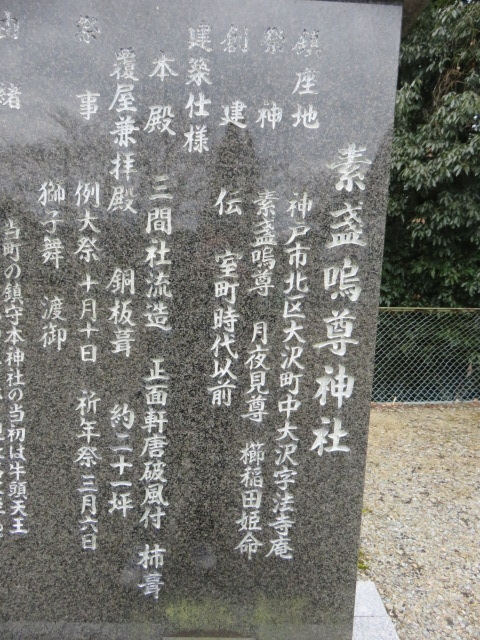 素盞嗚尊神社
鎮座地 神戸市北区大沢町中大沢字法寺庵
祭神 素盞嗚尊 月夜見尊 櫛稲田姫命
創建 伝 室町時代以前
建築仕様
本殿 三間社流造 正面軒唐破風付 柿葺
覆屋兼拝殿 銅板葺 約二十一坪
祭事 例大祭 十月十日 祈年祭 三月六日
獅子舞 渡御
由緒
当町の鎮守本神社の当初は牛頭天王